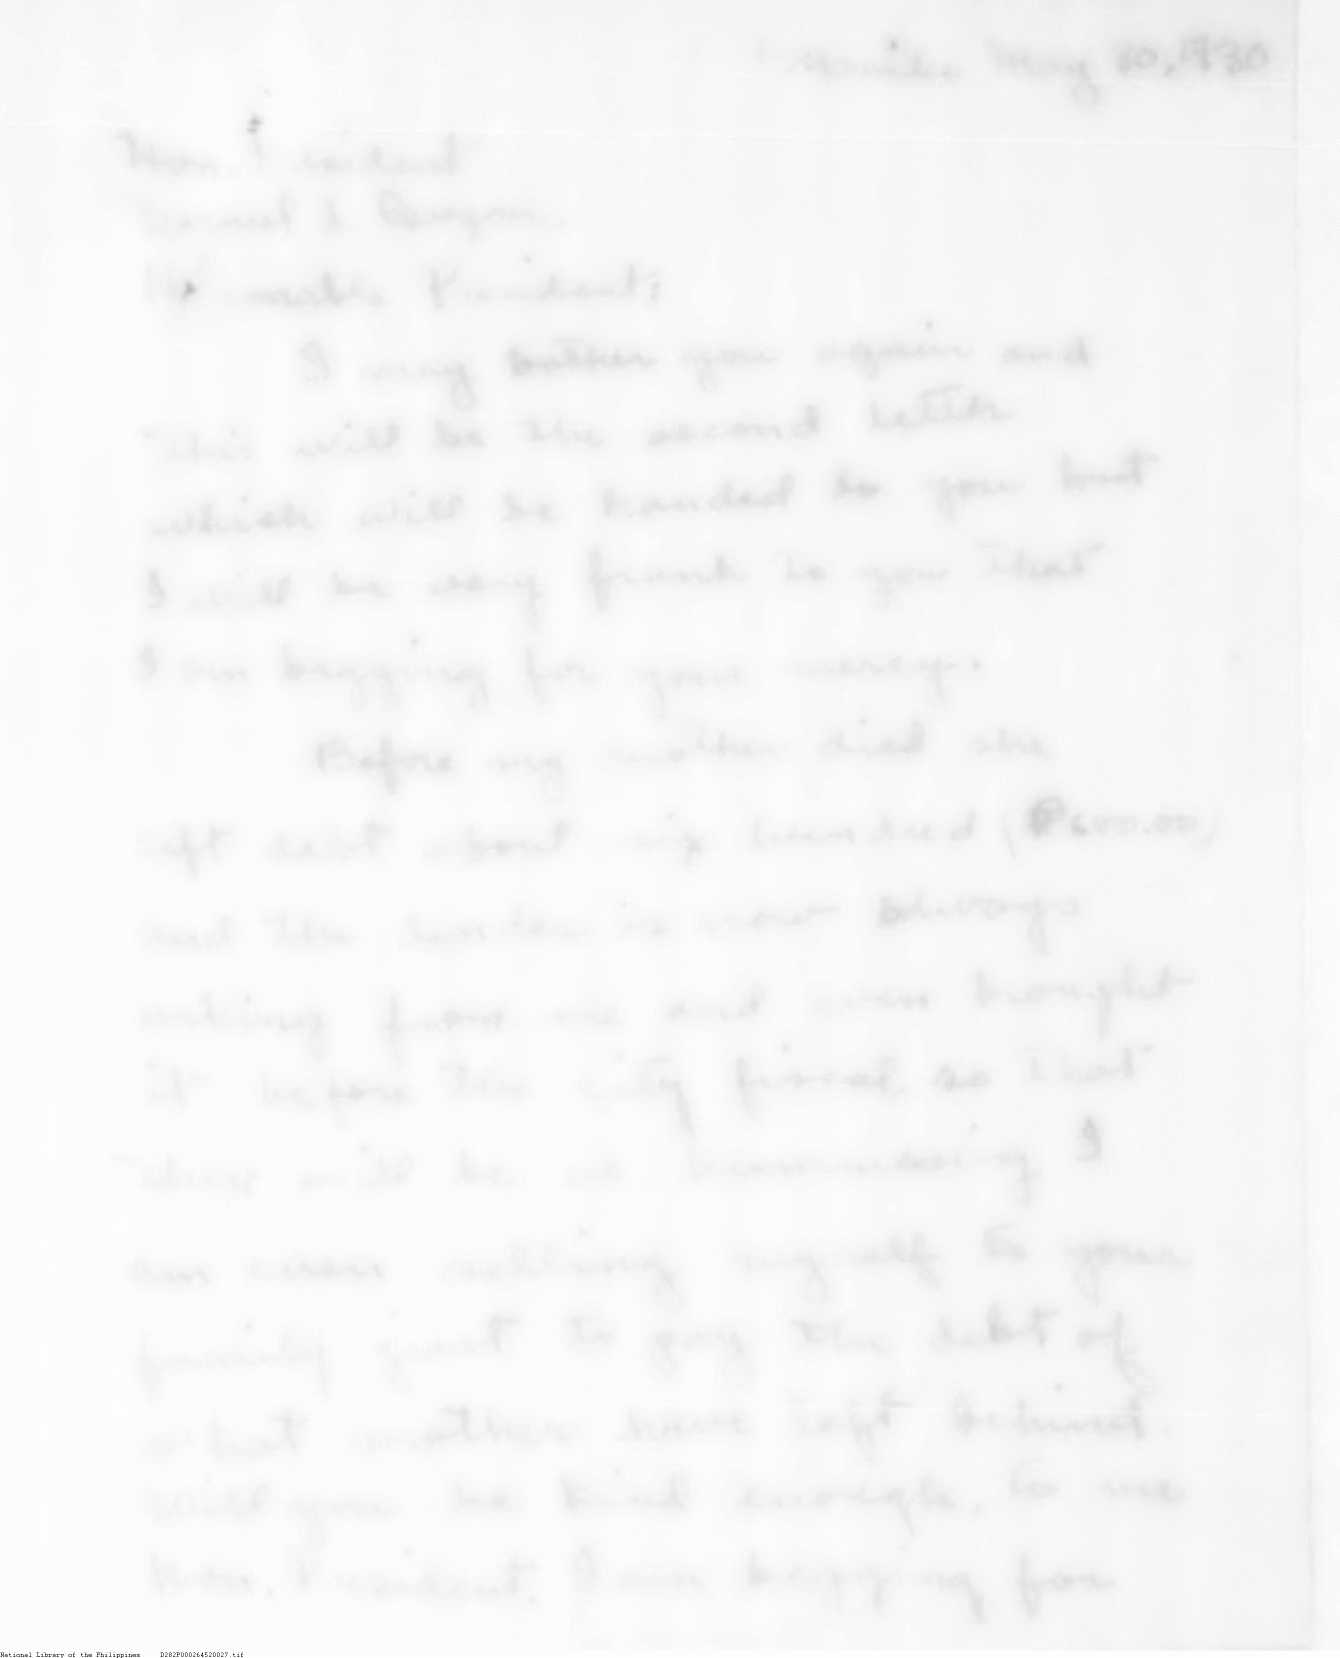 Manila May 30, 1930
Hon. President
Manuel L Quezon.
Honorable President:
I may bother you again and
this will be the second letter
which will be handed to you but
I will be very frank to you that
I am begging for your mercy.
Before my mother died she
left debt about six hundred (₱600.00)
and the lender is now always
asking from me and even brought
it before the city fiscal, so that
there will be no I
am even selling myself to your
family just to pay the debt of
what mother have left behind.
Will you be kind enough, to me
Hon. President. I am begging for
National Library of the Philippines D282P000264520027.tif